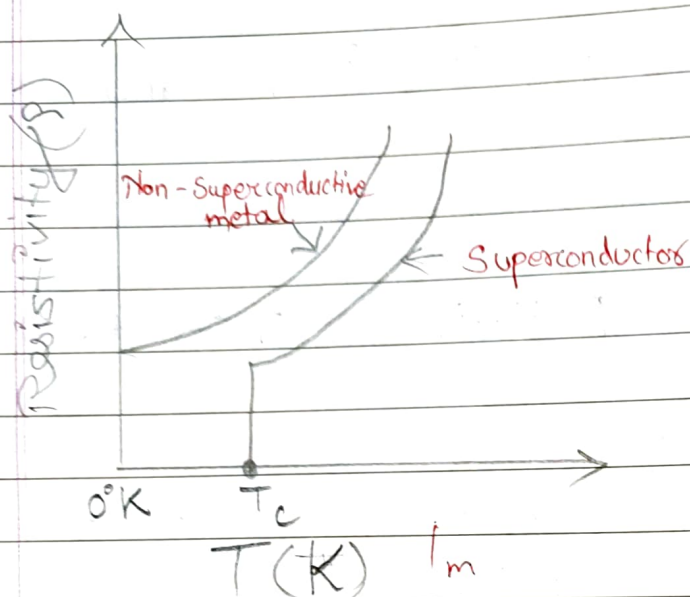 Resistivity (ρ)
Non-Superconductive
metal
Superconductor
0°K
Tc
T(K)
1m